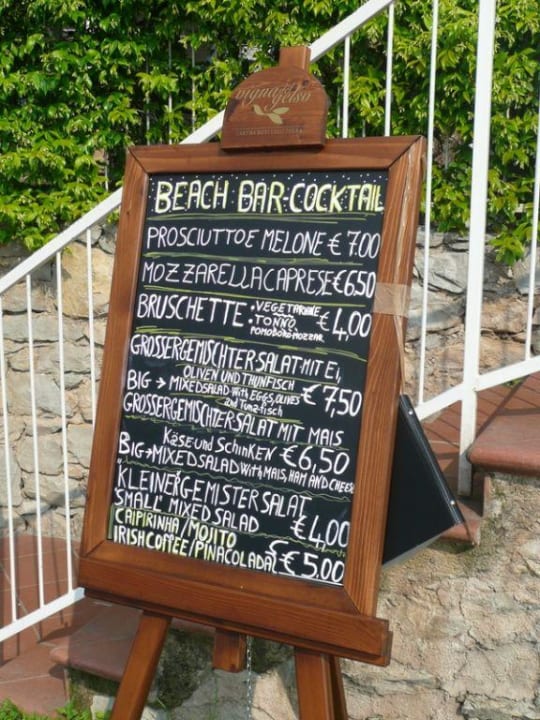 vigna del gelso
BEACH BAR·COCKTAIL
PROSCIUTTO E MELONE € 7.00
MOZZARELLA CAPRESE €6.50
BRUSCHETTE: ·VEGETARIANE
·TONNO
POMODORO-MOZZAR
€ 4,00
GROSSERGEMISCHTER SALAT MIT Ei,
OLIVEN UND THUNFISCH
BIG → MIXED SALAD With EGGS, OLIVES
and Tunafisch
€ 7,50
GROSSERGEMISCHTER SALAT MIT MAIS
KÄSE und SCHINKEN € 6,50
BIG→MIXED SALAD With MAIS, HAM AND CHEESE
KLEINER GEMISTER SALAT
"SMALL" MIXED SALAD € 4,00
CAIPIRINHA / MOJITO
IRISH COFFEE / PINACOLADA € 5.00